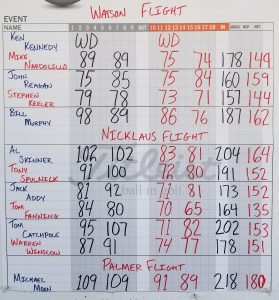 WATSON FLIGHT
EVENT
NAME 1 2 3 4 5 6 7 8 9 OUT 10 11 12 13 14 15 16 17 18 IN GROSS HCP NET
KEN KENNEDY WD WD
MIKE NARDOLILLO 89 89 75 74 178 149
JOHN REAGAN 75 85 75 84 160 159
STEPHEN KEELER 79 78 73 71 157 144
BILL MURPHY 98 89 86 76 187 162
NICKLAUS FLIGHT
AL SKINNER 102 102 83 81 204 164
TONY SPULNICK 91 100 72 80 191 152
JACK ADDY 81 92 71 81 173 152
TOM FANNING 84 80 70 65 164 135
TOM CATCHPOLE 95 107 71 82 202 153
WARREN WINSLOW 87 91 74 77 178 151
PALMER FLIGHT
MICHAEL MOON 109 109 91 89 218 180